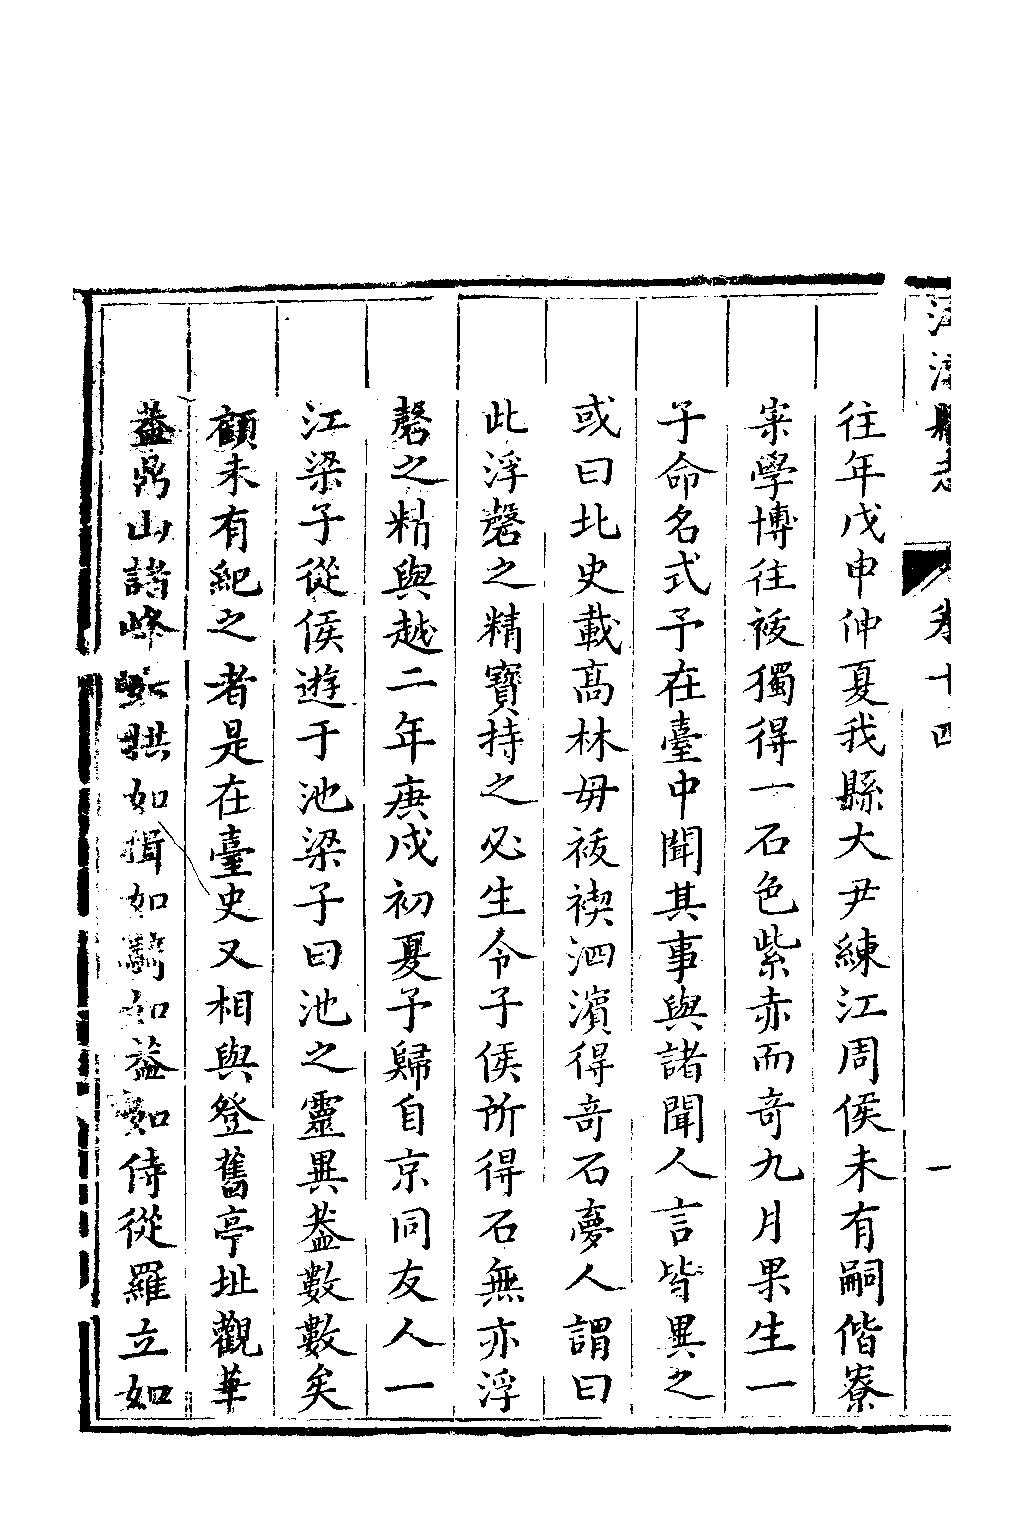 縣志 卷十四 一
往年戊申仲夏我縣大尹練江周侯未有嗣偕寮
寀學博往祓獨得一石色紫赤而奇九月果生一
子命名式予在臺中聞其事與諸聞人言皆異之
或曰北史載高林毋祓禊泗濱得奇石夢人謂曰
此浮磬之精寶持之必生令子侯所得石無亦浮
磬之精與越二年庚戌初夏予歸自京同友人一
江梁子從侯遊于池梁子曰池之靈異葢數數矣
顧未有紀之者是在臺史又相與登舊亭址觀華
葢鼎山諸峰如拱如揖如騎如葢如侍從羅立如